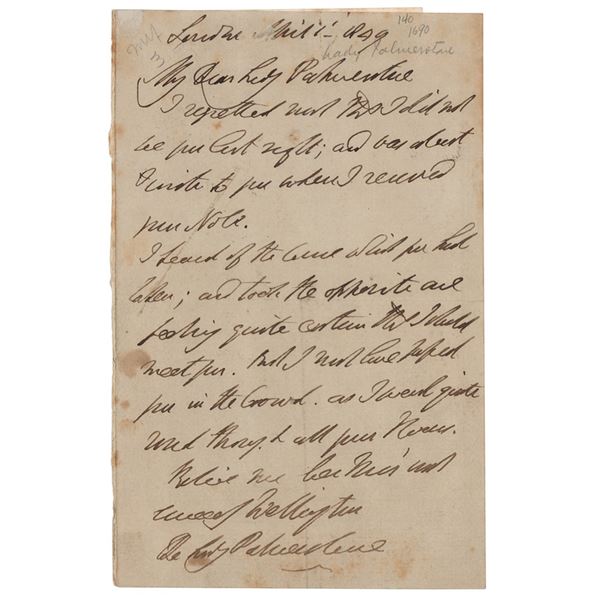 140
1690
London April 1st 1849
Lady Palmerstone
My Dear Lady Palmerstone
I regretted much that I did not
see you last night; and was about
to write to you when I received
your Note.
I heard of the Course which you had
taken; and took the opposite one
feeling quite certain that I should
meet you. But I must have passed
you in the Crowd. as I went quite
round through all your Rooms.
Believe me Ever Yours most
sincerely Wellington
The Lady Palmerstone